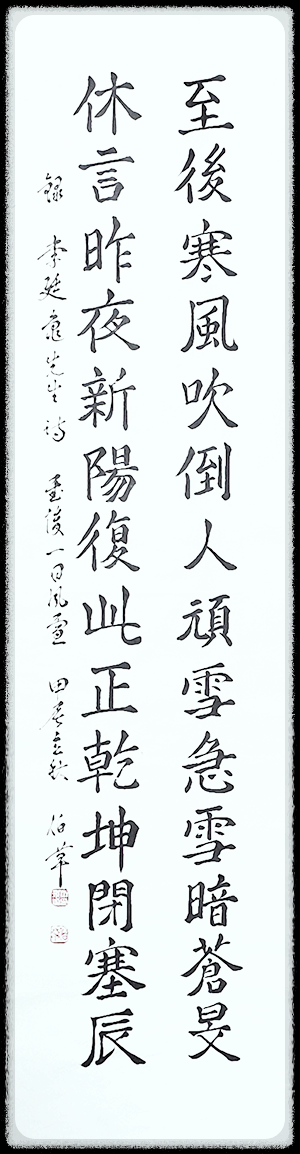 至後寒風吹倒人頑雪急雪暗蒼旻
休言昨夜新陽復此正乾坤閉塞辰
錄 李廷龜先生詩 至後一日風雪